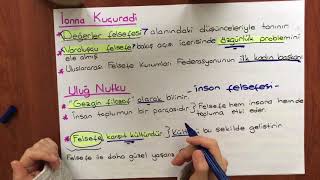 Ionna Kuçuradi
* Değerler felsefesi alanındaki düşünceleriyle tanınır.
* Varoluşçu felsefe bakış açısı içerisinde özgürlük problemini ele almış
* Uluslararası Felsefe Kurumları Federasyonunun ilk kadın başkanı
Uluğ Nutku
- insan felsefesi -
* "Gezgin filozof" olarak bilinir.
* İnsan toplumun bir parçasıdır } Felsefe hem insana hemde topluma etki eder.
* Felsefe karşıt kültürdür } bu şekilde geliştirir
Felsefe ile daha güzel yaşam